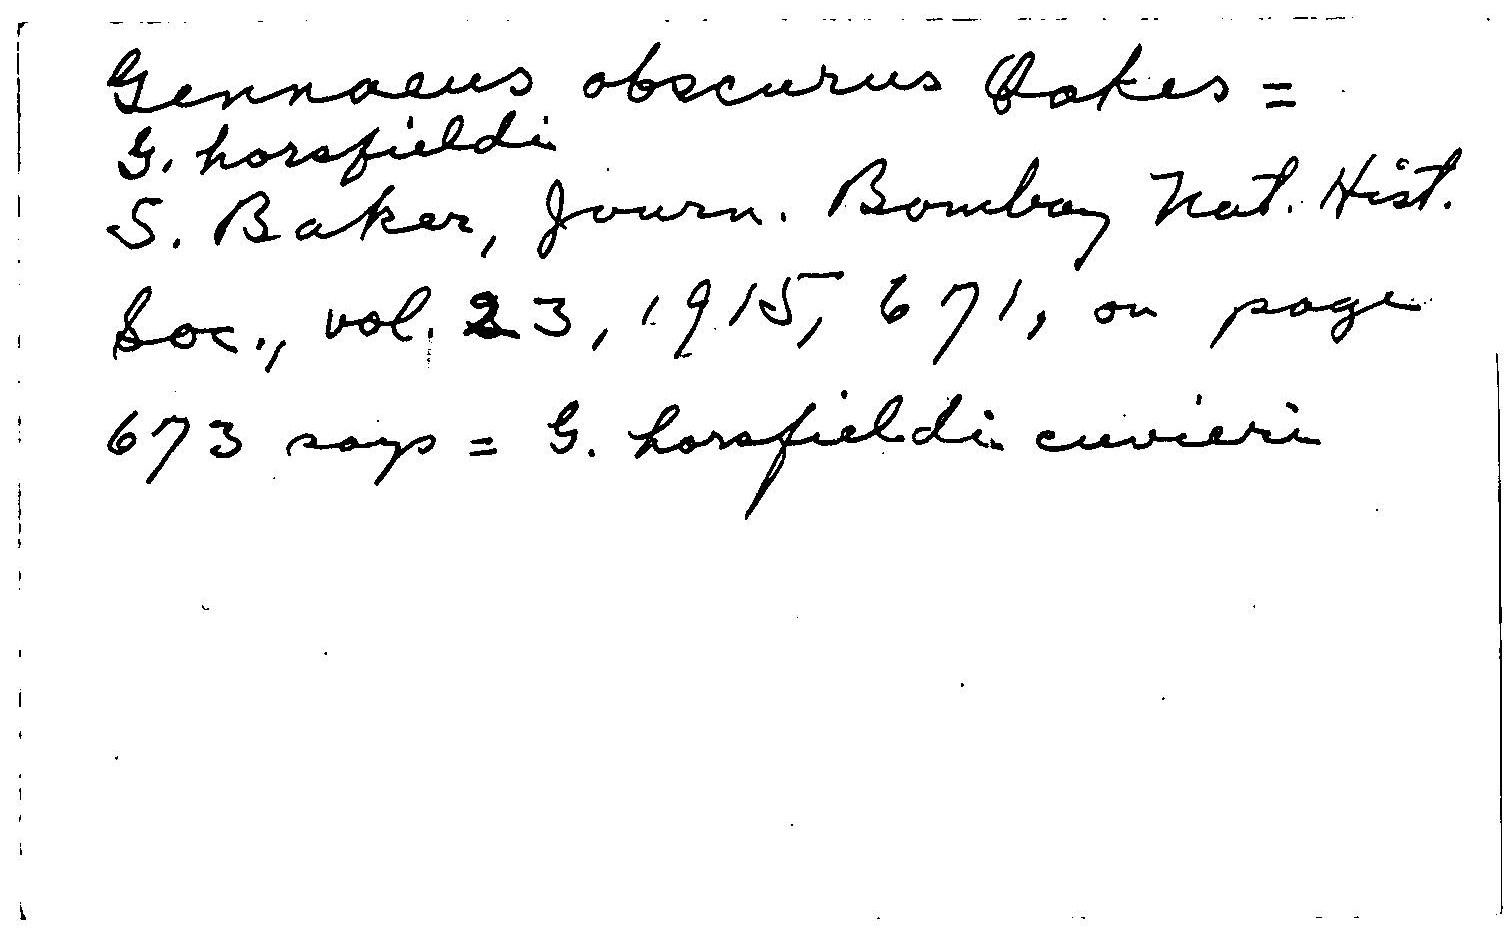 Gennaeus obscurus Oakes =
G. horsfieldi
S. Baker, Journ. Bombay Nat. Hist.
Soc., vol. 23, 1915, 671, on page
673 says = G. horsfieldi cuvieri